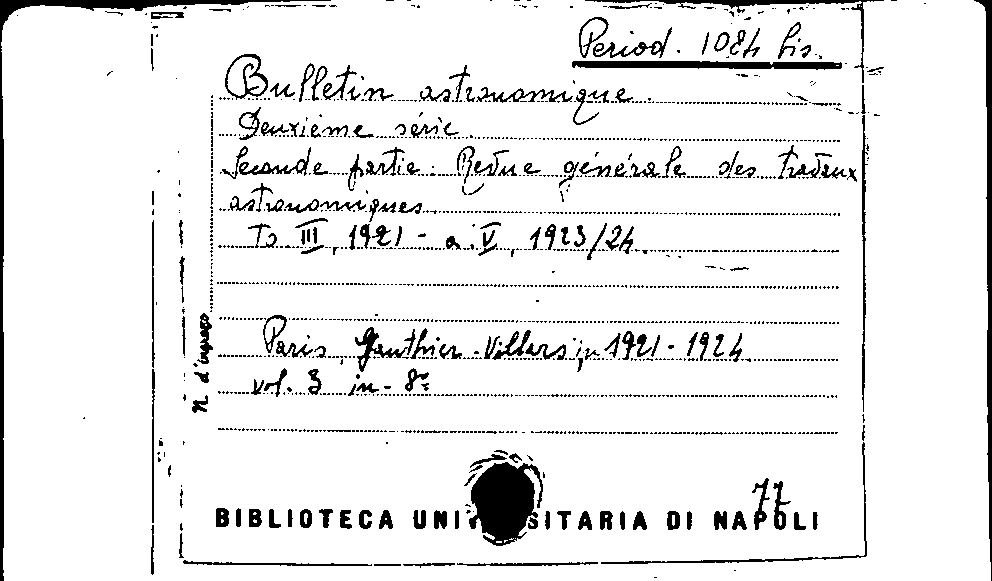 Period. 1084 bis.
Bulletin astronomique.
Deuxième série.
Seconde partie: Revue générale des travaux
astronomiques.
To. III, 1921 - a. V, 1923/24.
Paris, Gauthier-Villars, 1921-1924.
vol. 3 in-8°
N. d'ingresso
77
BIBLIOTECA UNIVERSITARIA DI NAPOLI